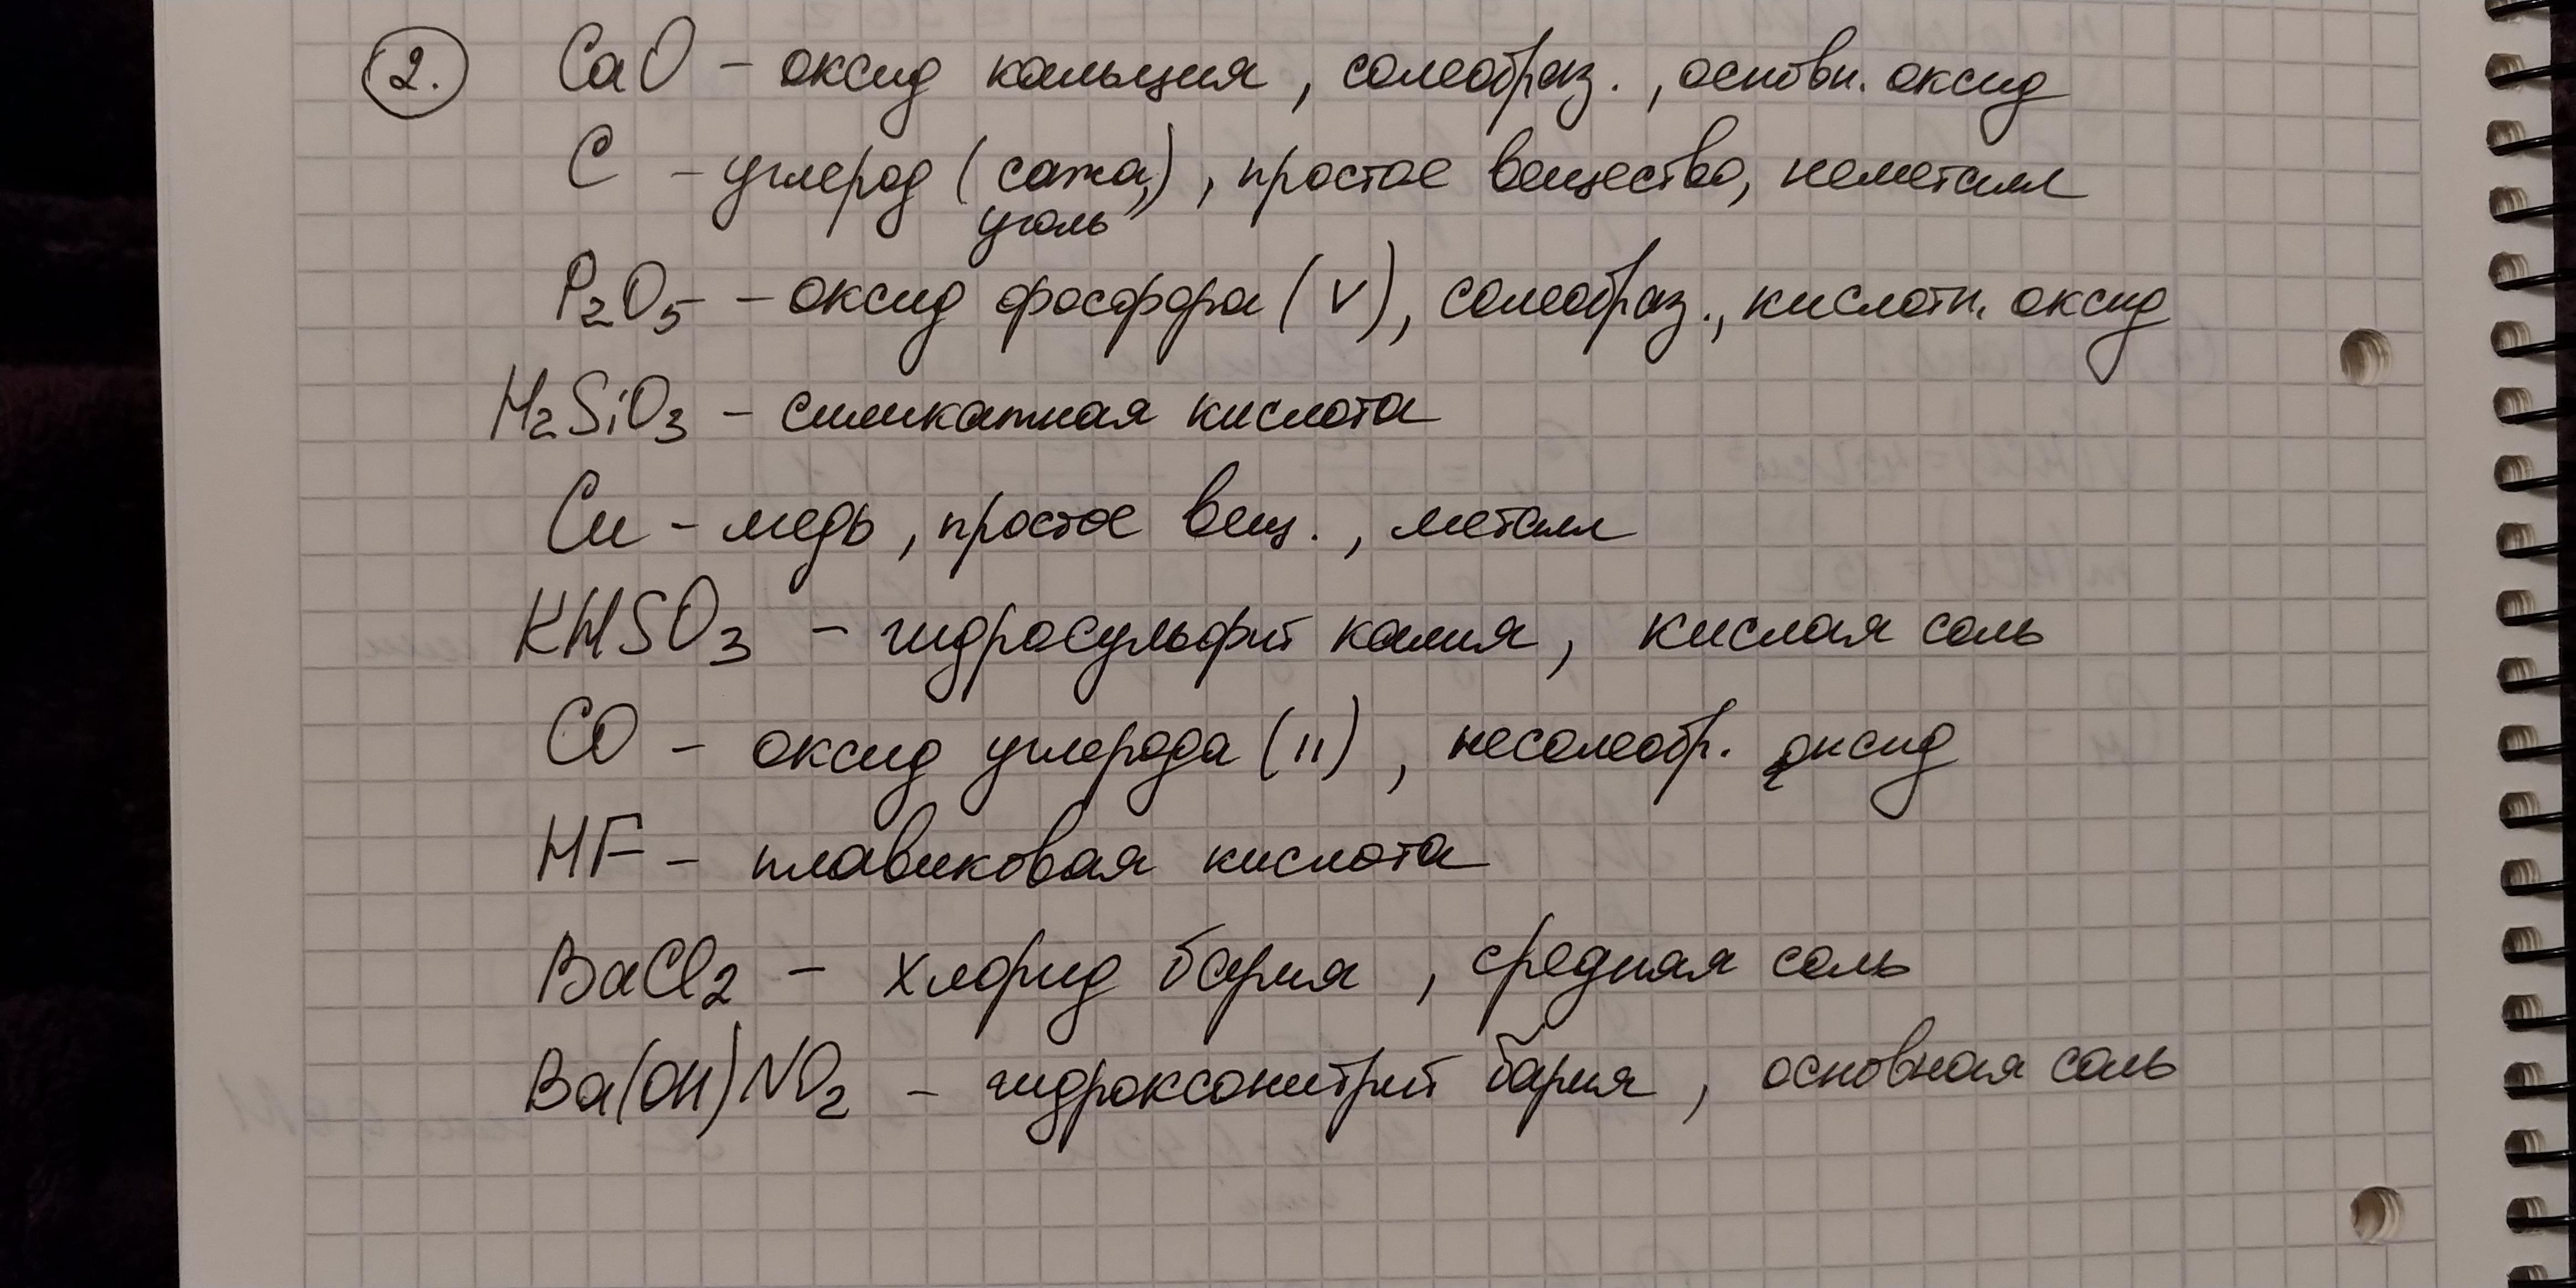 2. CaO – оксид кальция, солеобраз., основн. оксид
C – углерод (сажа,), простое вещество, неметалл
уголь
P₂O₅ – оксид фосфора (V), солеобраз., кислотн. оксид
H₂SiO₃ – силикатная кислота
Cu – медь, простое вещ., металл
KHSO₃ – гидросульфит калия, кислая соль
CO – оксид углерода (II), несолеобр. оксид
HF – плавиковая кислота
BaCl₂ – хлорид бария, средная соль
Ba(OH)NO₂ – гидроксонитрит бария, основная соль